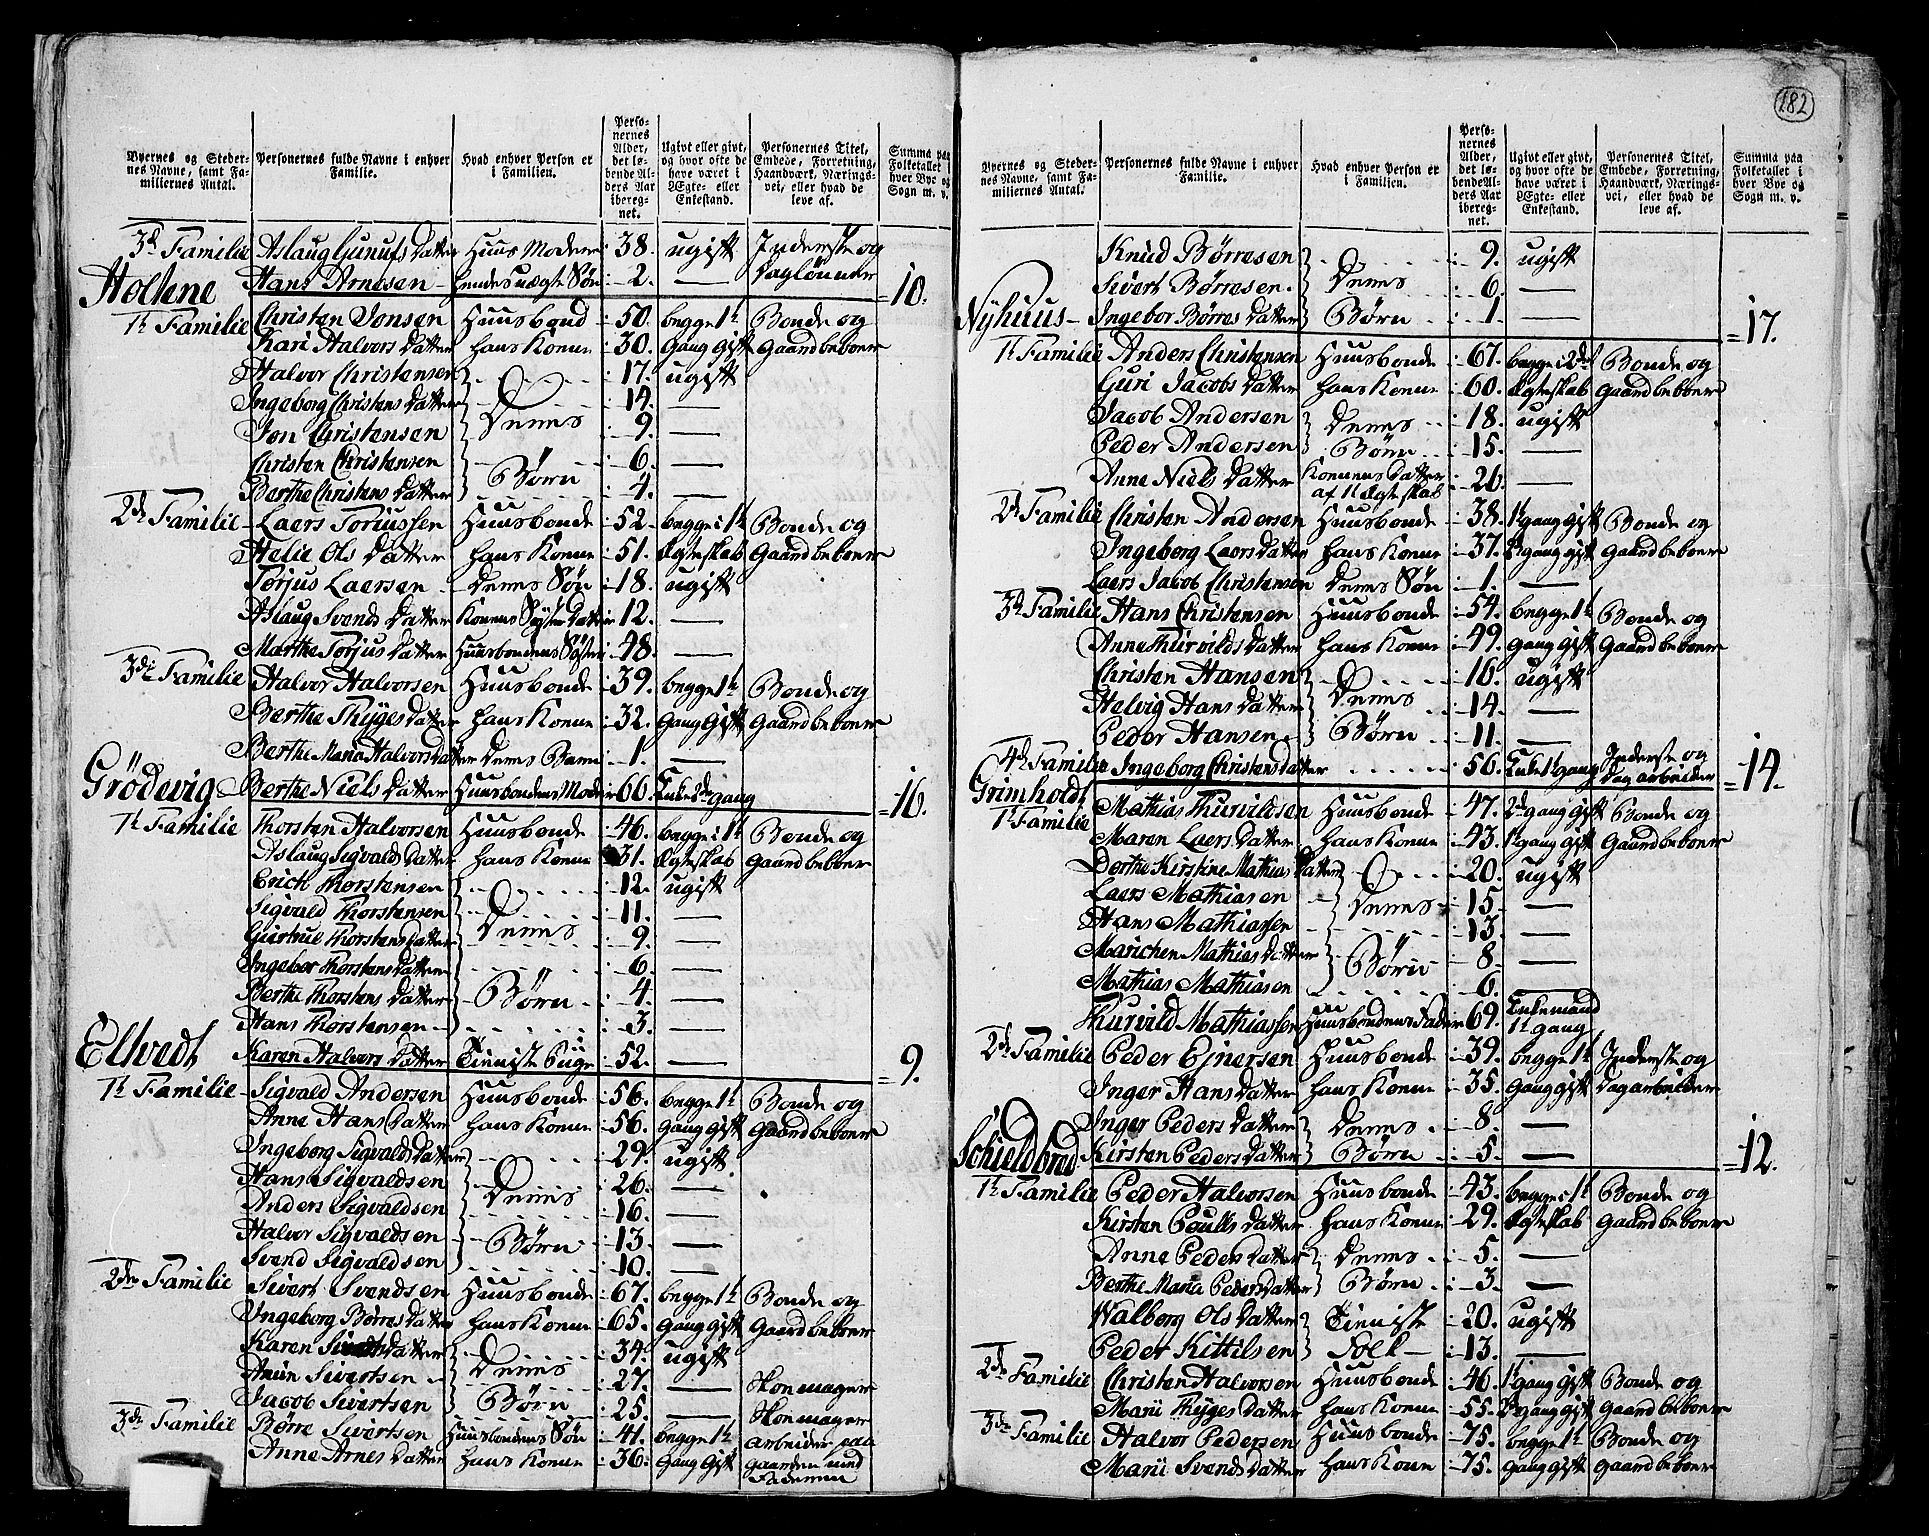 182
Byernes og Stedernes Navne, samt Familiernes Antal. | Personernes fulde Navne i enhver Familie. | Hvad enhver Person er i Familien. | Personernes Alder, det løbende Alders Aar iberegnet. | Ugivt eller givt, og hvor ofte de have været i Ægte- eller Enkestand. | Personernes Titel, Embede, Forretning, Haandværk, Næringsvei, eller hvad de leve af. | Summa paa Folketallet i hver Bye og Sogn m. v.
3d Familie Aslaug Gunufs Datter Huus Moder 38. ugift Inderste og
Hans Arnesen hendes uægte Søn 2. — Daglønner = 10.
Holtene
1t Familie Christen Jonsen Huusbond 50. begge 1t Bonde og
Kari Halvors Datter hans Konne 30. Gang Gift Gaardbeboer
Halvor Christensen } 17. ugift
Ingeborg Christens Datter } Deres 14. —
Jon Christensen } 9. —
Christen Christensen } Børn 6. —
Berthe Christens Datter } 4. —
2de Familie Laers Torjussen Huusbonde 52. begge i 1t Bonde og
Helie Ols Datter hans Konne 51. Egteskab Gaardbeboer
Torjus Laersen Deres Søn 18. ugift
Aslaug Svends Datter Konens Søster Datter 12. —
Marthe Torjus Datter Huusbondens Søster 48. —
3die Familie Halvor Halvorsen Huusbonde 39. begge 1t Bonde og
Berthe Thyges Datter hans Konne 32. Gang Gift Gaardbeboer
Berthe Maria Halvors Datter Deres Barn 1. —
Berthe Niels Datter Huusbondens Moder 66. Enke 2den gang = 16.
Grödevig
1t Familie Thorsten Halvorsen Huusbonde 46. begge i 1t Bonde og
Aslaug Sigvalds Datter hans Konne 31. Egteskab Gaardbeboer
Erich Thorstensen } 12. ugift
Sigvald Thorstensen } Deres 11. —
Giertrue Thorstens Datter } 9. —
Ingebor Thorstens Datter } 6. —
Berthe Thorstens Datter } Børn 4. —
Hans Thorstensen } 3. —
Karen Halvors Datter Tieniste Pige 52. — = 9.
Ellvedt
1t Familie Sigvald Andersen Huusbonde 56. begge 1t Bonde og
Anne Hans Datter hans Konne 56. Gang Gift Gaardbeboer
Yngeborg Sigvalds Datter } 29. ugift
Hans Sigvaldsen } Deres 26. —
Anders Sigvaldsen } 16. —
Halvor Sigvaldsen } Børn 13. —
Svend Sigvaldsen } 10. —
2den Familie Sivert Svendsen Huusbonde 67. begge 1t Bonde og
Yngeborg Börres Datter hans Konne 65. Gang Gift Gaardbeboer
Karen Siverts Datter } Deres 34. ugift
Amun Sivertsen } 27. — Skomager
Jacob Sivertsen } Børn 25. — Skomager
3die Familie Börre Sivertsen Huusbondens Søn 41. begge 1t arbeider paa
Anne Arnes Datter hans Konne 36. Gang Gift Gaarden med Faderen
Byernes og Stedernes Navne, samt Familiernes Antal. | Personernes fulde Navne i enhver Familie. | Hvad enhver Person er i Familien. | Personernes Alder, det løbende Alders Aar iberegnet. | Ugivt eller givt, og hvor ofte de have været i Ægte- eller Enkestand. | Personernes Titel, Embede, Forretning, Haandværk, Næringsvei, eller hvad de leve af. | Summa paa Folketallet i hver Bye og Sogn m. v.
Knud Börresen } 9. ugift
Sivert Börresen. } Deres 6. —
Ingebor Börres Datter } Børn 1. — = 17.
Nyhuus
1t Familie Anders Christensen Huusbonde 67. begge i 2det Bonde og
Guri Jacobs Datter hans Konne 60. Egteskab Gaardbeboer
Jacob Andersen } Deres 18. ugift
Peder Andersen } Børn 15. —
Anne Niels Datter Konnens Datter af 1t Egteskab 26. —
2de Familie Christen Andersen Huusbonde 38. 1t gang gift Bonde og
Ingeborg Laers Datter hans Konne 37. gang gift Gaardbeboer
Laers Jacob Christensen Deres Søn 1. —
3de Familie Hans Christensen Huusbonde 54. begge 1t Bonde og
Anne Thurvilds Datter hans Konne 49. Gang Gift Gaardbeboer
Christen Hansen } 16. ugift
Helvig Hans Datter } Deres 14. —
Peder Hansen } Børn 11. —
4de Familie Ingeborg Christens Datter 56. Enke 1t gang Inderste og Dagarbeider = 14.
Grimholdt
1t Familie Mathias Thurvildsen Huusbonde 47. 2den gang gift Bonde og
Maren Laers Datter hans Konne 43. 1t gang gift Gaardbeboer
Dorthe Kirstine Mathias Datter } 20. ugift
Laers Mathiasen } Deres 15. —
Hans Mathiassen } 13. —
Marichen Mathias Datter } Børn 8. —
Mathias Mathiasen } 6. —
Thurvild Mathiassen Huusbondens Fader 69. Enkemand 1t gang
2de Familie Peder Ejnersen Huusbonde 39. begge 1t Inderste og
Inger Hans Datter hans Konne 35. Gang Gift Dagarbeider
Inger Peders Datter } Deres 8. —
Kirsten Peders Datter } Børn 5. — = 12.
Schieldbred
1t Familie Peder Halvorsen Huusbonde 43. begge i 1t Bonde og
Kirsten Poulls Datter hans Konne 29. Egteskab Gaardbeboer
Anne Peders Datter } Deres 5. —
Berthe Maria Peders Datter } Børn 3. —
Walborg Ols Datter } Tieniste 20. ugift
Peder Kittilsen } Folk 13. —
2de Familie Christen Halvorsen Huusbonde 46. 1t gang gift Bonde og
Marii Thyges Datter hans Konne 55. gang gift Gaardbeboer
3de Familie Halvor Pedersen Huusbonde 75. begge 1t Bonde og
Marii Svends Datter hans Konne 75. Gang Gift Gaardbeboer